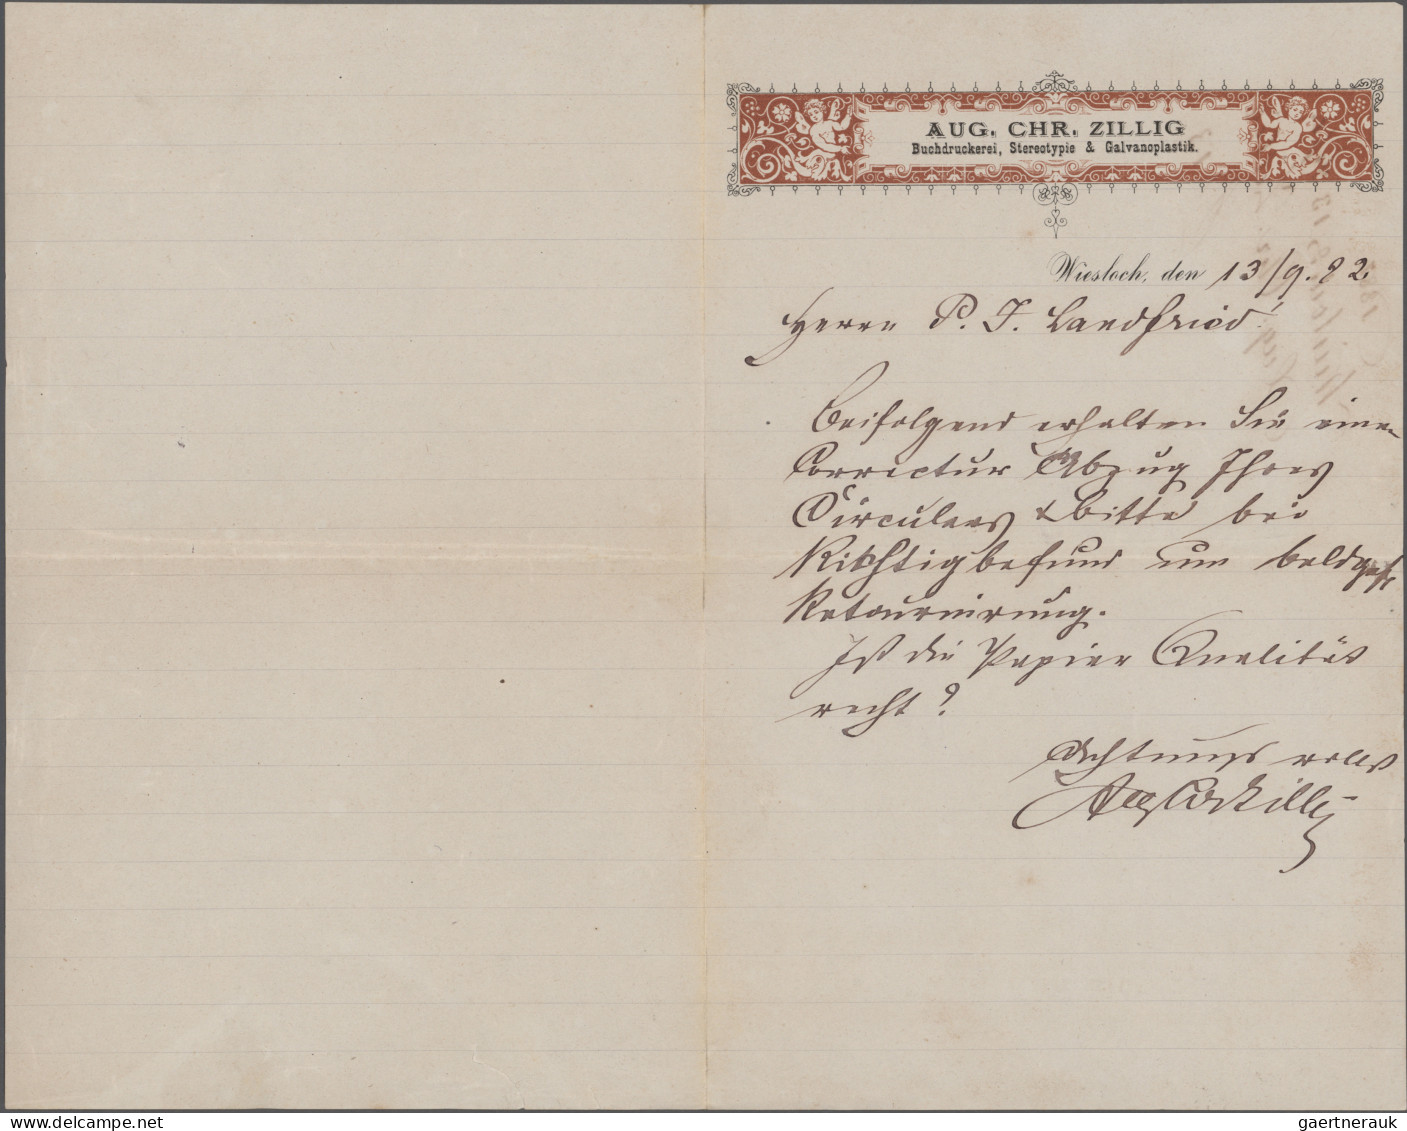 AUG. CHR. ZILLIG
Buchdruckerei, Stereotypie & Galvanoplastik.
Wiesloch, den 13/9. 82.
Herrn P. J. Landfried!
Beifolgend erhalten Sie einen
Correctur Abzug Ihres
Circulars & bitte bei
Richtigbefund um baldgefl
Retournirung.
Ist die Papier Qualität
recht?
Achtungsvollst
Aug Chr Zillig
gaertnerauk